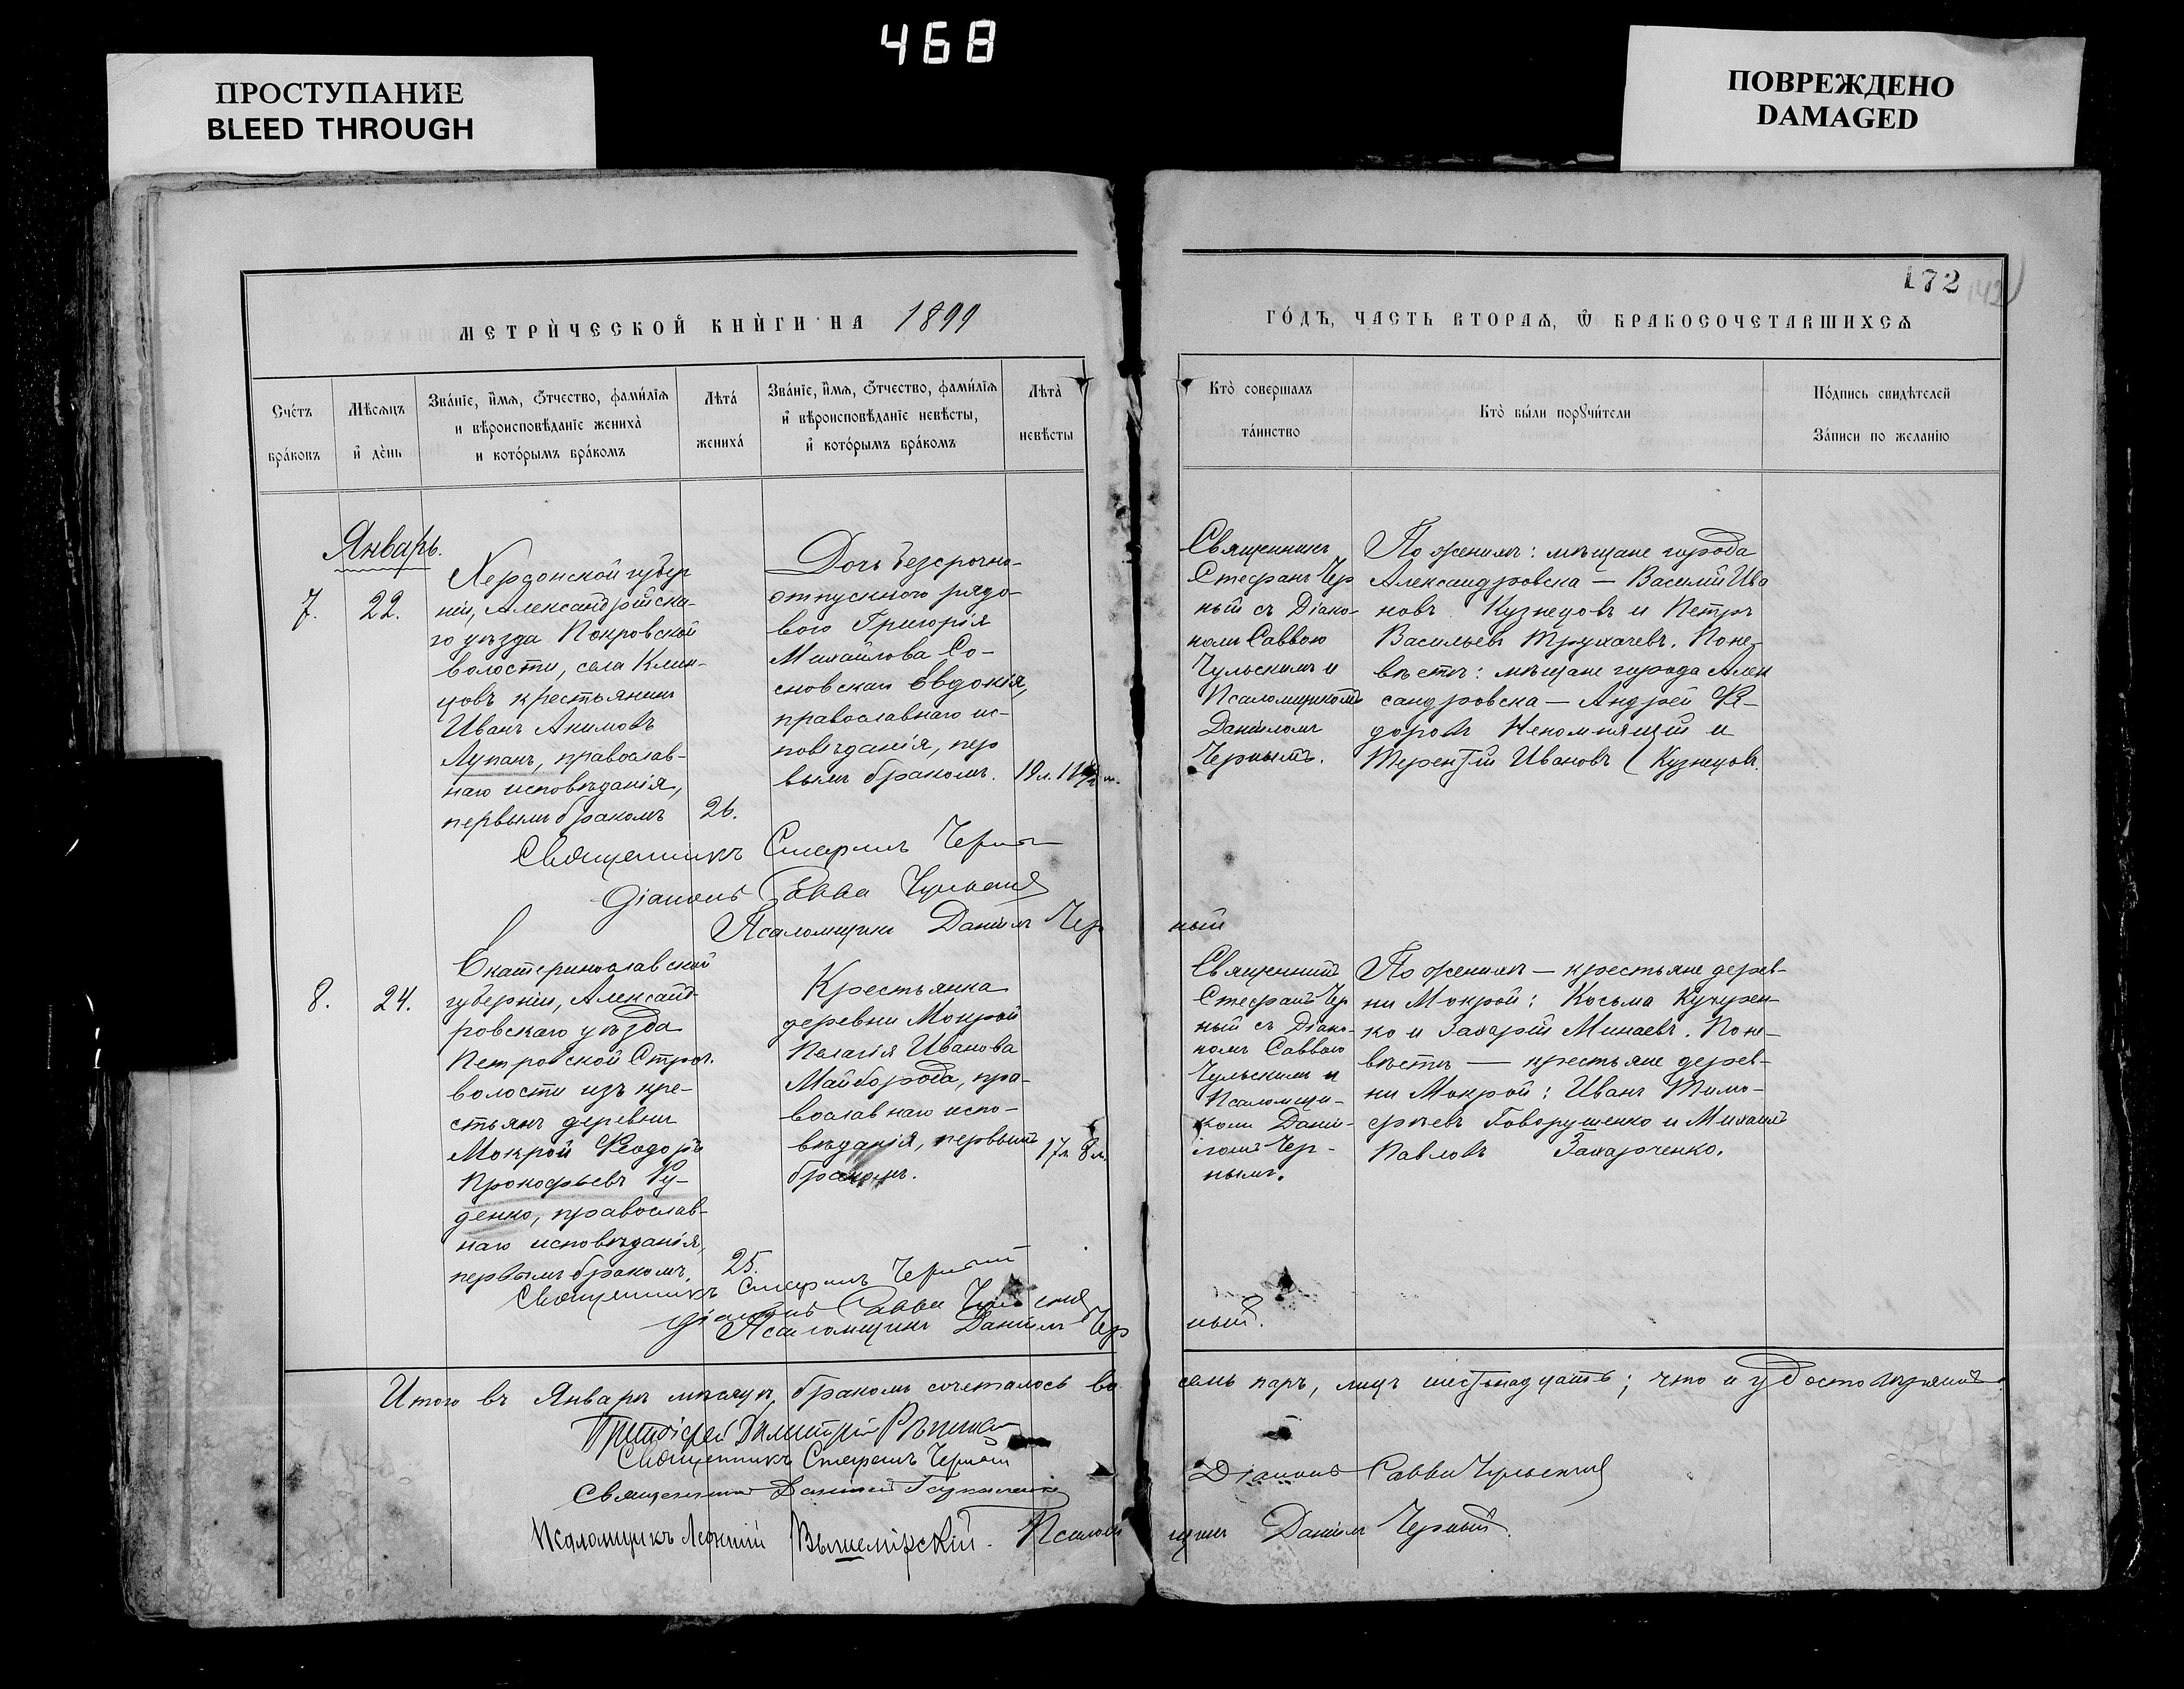 468
ПРОСТУПАНИЕ
BLEED THROUGH
ПОВРЕЖДЕНО
DAMAGED
172
МЕТРИ́ЧЕСКОЙ КНИ́ГИ НА 1899
ГО́ДЪ, ЧАСТЬ ВТОРАѦ, Ѿ БРАКОСОЧЕТАВШИХСѦ
Сче́тъ
бра́ковъ
Мѣ́сѧцъ
и҆ де́нь
Зва́нїе, и҆́мѧ, ѻ҆́тчество, фами́лїѧ
и вѣроисповѣ́данїе жениха̀
и кото́рымъ бра́комъ
Лѣта́
жениха́
Зва́нїе, и҆́мѧ, ѻ҆́тчество, фами́лїѧ
и҆ вѣроисповѣ́данїе невѣ́сты,
и҆ кото́рымъ бра́комъ
Лѣта̀
невѣ́сты
Кто̀ совершалъ
та́инство
Кто̀ бы́ли порꙋчи́тели
По́дпись свидѣ́телей
За́писи по жела́нїю
Январь.
7.
22.
Херсонской губер
ніи, Александрійска-
го уѣзда Покровской
волости, села Клин-
цовъ крестьянинъ
Иванъ Акимовъ
Лупанъ, православ-
наго исповѣданія,
первымъ бракомъ
26.
Дочь безсрочно-
отпускного рядо-
вого Григорія
Михайлова Со-
сновская Евдокія,
православнаго ис-
повѣданія, пер
вымъ бракомъ.
19 л. 11
Священникъ
Стефанъ Чер
ный съ Діако-
номъ Саввою
Чульскимъ и
Псаломщикомъ
Даниломъ
Чернымъ.
По женихѣ: мѣщане города
Александровска — Василій Ива
новъ Кузнецовъ и Петръ
Васильевъ Трухачевъ. По не-
вѣстѣ: мѣщане города Алек
сандровска — Андрей Ѳе-
доровъ Непомнящій и
Терентій Ивановъ Кузнецовъ.
Священникъ Стефанъ Черный
Діаконъ Савва Чульскій
Псаломщикъ Даніилъ Чер
ный
8.
24.
Екатеринославской
губерніи, Александ-
ровскаго уѣзда
Петровской Строг.
волости изъ кре-
стьянъ деревни
Мокрой Ѳеодоръ
Прокофьевъ Ру-
денко, православ-
наго исповѣданія,
первымъ бракомъ.
25.
Крестьянка
деревни Мокрой
Пелагія Иванова
Майборода, пра-
вославнаго испо-
вѣданія, первымъ
бракомъ.
17 л. 8 м.
Священникъ
Стефанъ Чер
ный съ Діако-
номъ Саввою
Чульскимъ и
Псаломщи-
комъ Дані-
иломъ Чер-
нымъ.
По женихѣ — крестьяне дерев-
ни Мокрой: Косьма Кучерен-
ко и Захарій Минаевъ. По не-
вѣстѣ — крестьяне дерев-
ни Мокрой: Иванъ Тимо-
фѣевъ Говорушенко и Михаилъ
Павловъ Захарченко.
Священникъ Стефанъ Черный
Діаконъ Савва Чульскій
Псаломщикъ Даніилъ Чер
ный.
Итого въ Январѣ мѣсяцѣ, бракомъ сочеталось во
семь паръ, лицъ шестьнадцать; что и удостовѣряемъ.
Протоіерей Димитрій
Священникъ Стефанъ Черный
Діаконъ Савва Чульскій
Священникъ
Псаломщикъ Вышемірскій. Псалом
щикъ Даніилъ Черный.